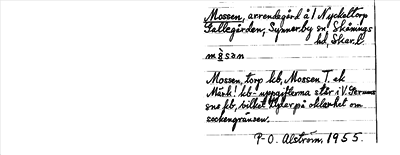 Mossen, arrendegård å 1 Nyckeltorp
Gallegården, Synnerby sn Skånings
hd, Skar.l.
mòsan
Mossen, torp kb, Mossen T. ek
Märk! kb-uppgifterna står i V. Gerums
sns kb, vilket tyder på oklarhet om
sockengränsen.
P-O. Alström, 1955.